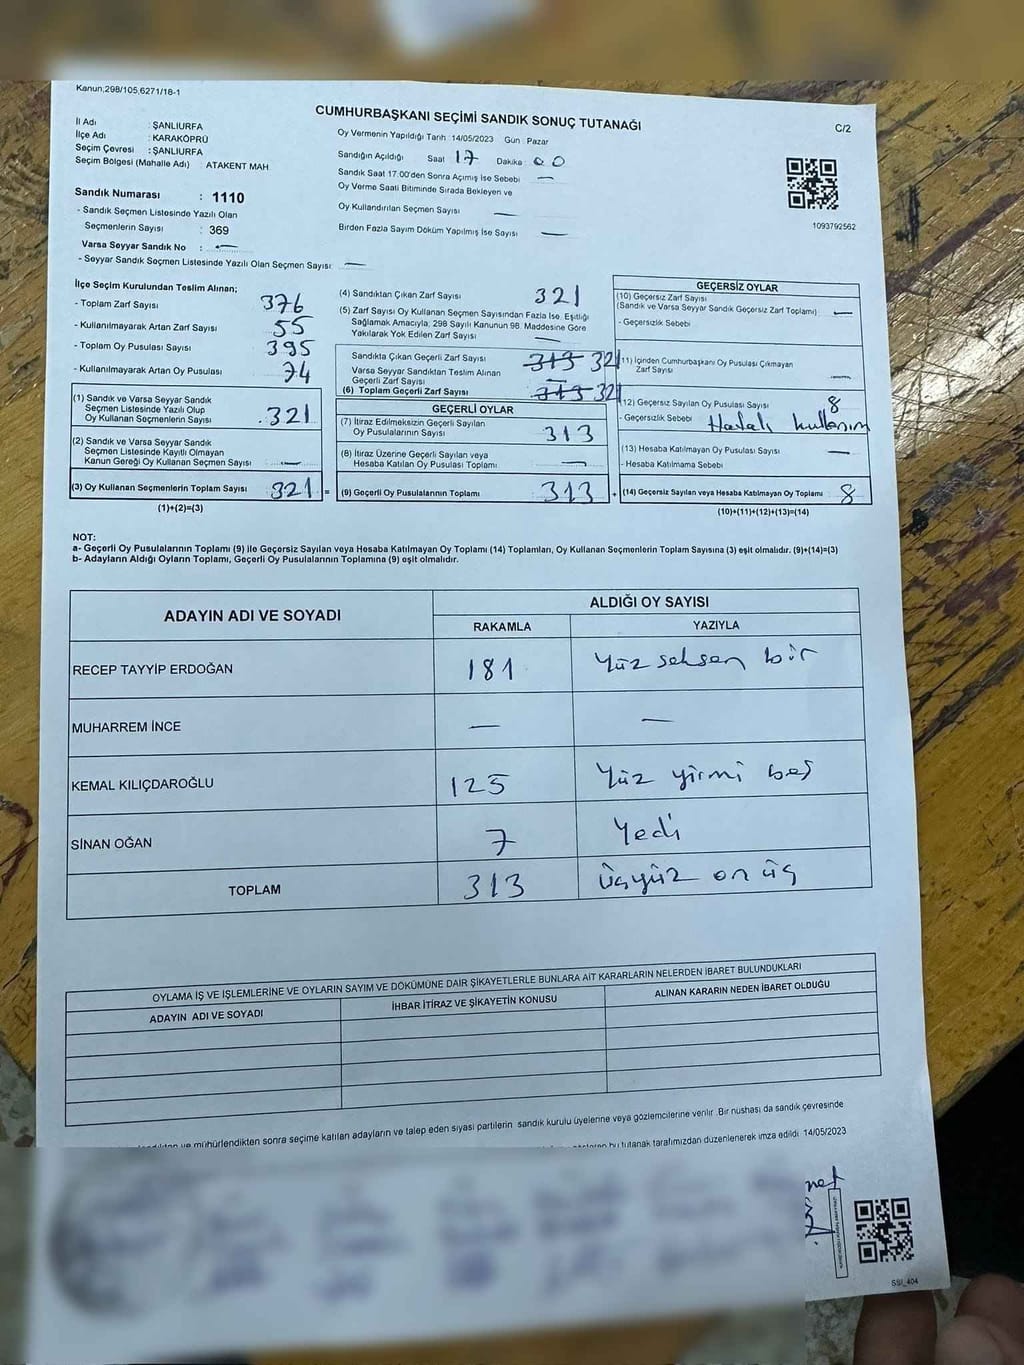 Kanun,298/105,6271/18-1
CUMHURBAŞKANI SEÇİMİ SANDIK SONUÇ TUTANAĞI
C/2
İl Adı : ŞANLIURFA
İlçe Adı : KARAKÖPRÜ
Seçim Çevresi : ŞANLIURFA
Seçim Bölgesi (Mahalle Adı) : ATAKENT MAH
Sandık Numarası : 1110
- Sandık Seçmen Listesinde Yazılı Olan
Seçmenlerin Sayısı : 369
Varsa Seyyar Sandık No : —
- Seyyar Sandık Seçmen Listesinde Yazılı Olan Seçmen Sayısı: —
Oy Vermenin Yapıldığı Tarih :14/05/2023 Gün : Pazar
Sandığın Açıldığı Saat 17 Dakika : 00
Sandık Saat 17.00'den Sonra Açımış İse Sebebi —
Oy Verme Saati Bitiminde Sırada Bekleyen ve
Oy Kullandırılan Seçmen Sayısı —
Birden Fazla Sayım Döküm Yapılmış İse Sayısı —
1093792562
İlçe Seçim Kurulundan Teslim Alınan;
- Toplam Zarf Sayısı 376
- Kullanılmayarak Artan Zarf Sayısı 55
- Toplam Oy Pusulası Sayısı 395
- Kullanılmayarak Artan Oy Pusulası 74
(1) Sandık ve Varsa Seyyar Sandık
Seçmen Listesinde Yazılı Olup
Oy Kullanan Seçmenlerin Sayısı 321
(2) Sandık ve Varsa Seyyar Sandık
Seçmen Listesinde Kayıtlı Olmayan
Kanun Gereği Oy Kullanan Seçmen Sayısı —
(3) Oy Kullanan Seçmenlerin Toplam Sayısı 321 =
(1)+(2)=(3)
(4) Sandıktan Çıkan Zarf Sayısı 321
(5) Zarf Sayısı Oy Kullanan Seçmen Sayısından Fazla İse, Eşitliği
Sağlamak Amacıyla, 298 Sayılı Kanunun 98. Maddesine Göre
Yakılarak Yok Edilen Zarf Sayısı —
Sandıkta Çıkan Geçerli Zarf Sayısı 313 321
Varsa Seyyar Sandıktan Teslim Alınan
Geçerli Zarf Sayısı —
(6) Toplam Geçerli Zarf Sayısı 313 321
GEÇERLİ OYLAR
(7) İtiraz Edilmeksizin Geçerli Sayılan
Oy Pusulalarının Sayısı 313
(8) İtiraz Üzerine Geçerli Sayılan veya
Hesaba Katılan Oy Pusulası Toplamı —
(9) Geçerli Oy Pusulalarının Toplamı 313 +
GEÇERSİZ OYLAR
(10) Geçersiz Zarf Sayısı
(Sandık ve Varsa Seyyar Sandık Geçersiz Zarf Toplamı) —
- Geçersizlik Sebebi
(11) İçinden Cumhurbaşkanı Oy Pusulası Çıkmayan
Zarf Sayısı —
(12) Geçersiz Sayılan Oy Pusulası Sayısı 8
- Geçersizlik Sebebi Hatalı kullanım
(13) Hesaba Katılmayan Oy Pusulası Sayısı —
- Hesaba Katılmama Sebebi
(14) Geçersiz Sayılan veya Hesaba Katılmayan Oy Toplamı 8
(10)+(11)+(12)+(13)=(14)
NOT:
a- Geçerli Oy Pusulalarının Toplamı (9) ile Geçersiz Sayılan veya Hesaba Katılmayan Oy Toplamı (14) Toplamları, Oy Kullanan Seçmenlerin Toplam Sayısına (3) eşit olmalıdır. (9)+(14)=(3)
b- Adayların Aldığı Oyların Toplamı, Geçerli Oy Pusulalarının Toplamına (9) eşit olmalıdır.
ADAYIN ADI VE SOYADI
ALDIĞI OY SAYISI
RAKAMLA YAZIYLA
RECEP TAYYİP ERDOĞAN 181 Yüz seksen bir
MUHARREM İNCE — —
KEMAL KILIÇDAROĞLU 125 Yüz yirmi beş
SİNAN OĞAN 7 Yedi
TOPLAM 313 Üçyüz on üç
OYLAMA İŞ VE İŞLEMLERİNE VE OYLARIN SAYIM VE DÖKÜMÜNE DAİR ŞİKAYETLERLE BUNLARA AİT KARARLARIN NELERDEN İBARET BULUNDUKLARI
ADAYIN ADI VE SOYADI İHBAR İTİRAZ VE ŞİKAYETİN KONUSU ALINAN KARARIN NEDEN İBARET OLDUĞU
ve mühürlendikten sonra seçime katılan adayların ve talep eden siyasi partilerin sandık kurulu üyelerine veya gözlemcilerine verilir .Bir nüshası da sandık çevresinde
bu tutanak tarafımızdan düzenlenerek imza edildi 14/05/2023
SSI_404